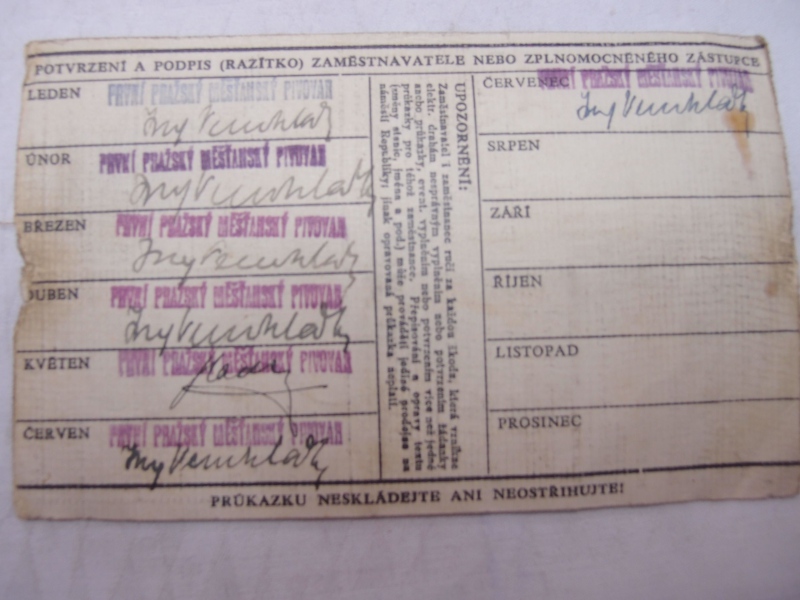 POTVRZENÍ A PODPIS (RAZÍTKO) ZAMĚSTNAVATELE NEBO ZPLNOMOCNĚNÉHO ZÁSTUPCE
LEDEN PRVNÍ PRAŽSKÝ MĚŠŤANSKÝ PIVOVAR
ÚNOR PRVNÍ PRAŽSKÝ MĚŠŤANSKÝ PIVOVAR
BŘEZEN PRVNÍ PRAŽSKÝ MĚŠŤANSKÝ PIVOVAR
DUBEN PRVNÍ PRAŽSKÝ MĚŠŤANSKÝ PIVOVAR
KVĚTEN PRVNÍ PRAŽSKÝ MĚŠŤANSKÝ PIVOVAR
ČERVEN PRVNÍ PRAŽSKÝ MĚŠŤANSKÝ PIVOVAR
UPOZORNĚNÍ:
Zaměstnavatel i zaměstnanec ručí za každou škodu, která vznikne
elektr. drahám nesprávným vyplněním nebo potvrzením žádanky
anebo průkazky, event. vyplněním nebo potvrzením více než jedné
průkazky pro téhož zaměstnance. Přepisování a opravy textu
(změny stanic, jména a pod.) může prováděti jedině prodejna na
náměstí Republiky; jinak opravovaná průkazka neplatí.
ČERVENEC PRVNÍ PRAŽSKÝ MĚŠŤANSKÝ PIVOVAR
SRPEN
ZÁŘÍ
ŘÍJEN
LISTOPAD
PROSINEC
PRŮKAZKU NESKLÁDEJTE ANI NEOSTŘIHUJTE!